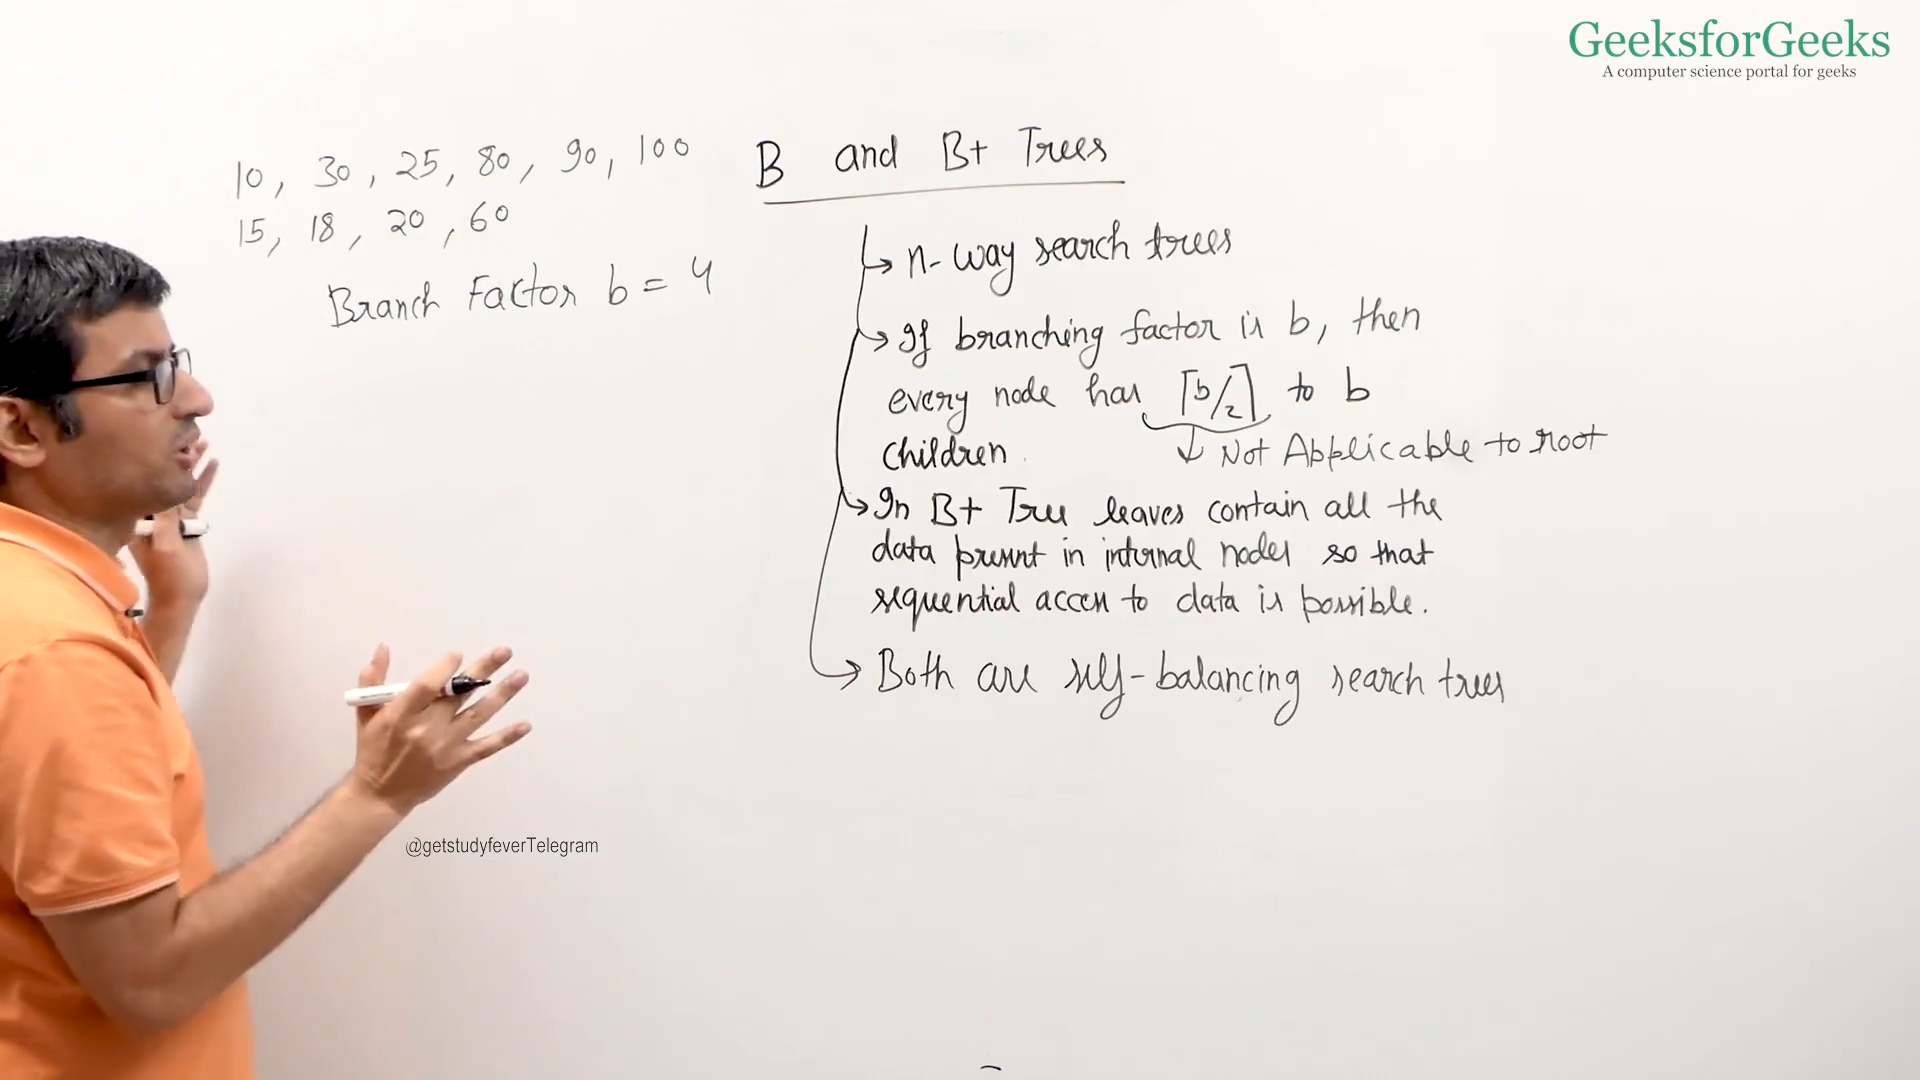 GeeksforGeeks
A computer science portal for geeks
10, 30, 25, 80, 90, 100
15, 18, 20, 60
Branch Factor b = 4
B and B+ Trees
n-way search trees
If branching factor is b, then
every node has ⌈b/2⌉ to b
children
Not Applicable to root
In B+ Tree leaves contain all the
data present in internal nodes so that
sequential access to data is possible.
Both are self-balancing search trees
@getstudyfeverTelegram